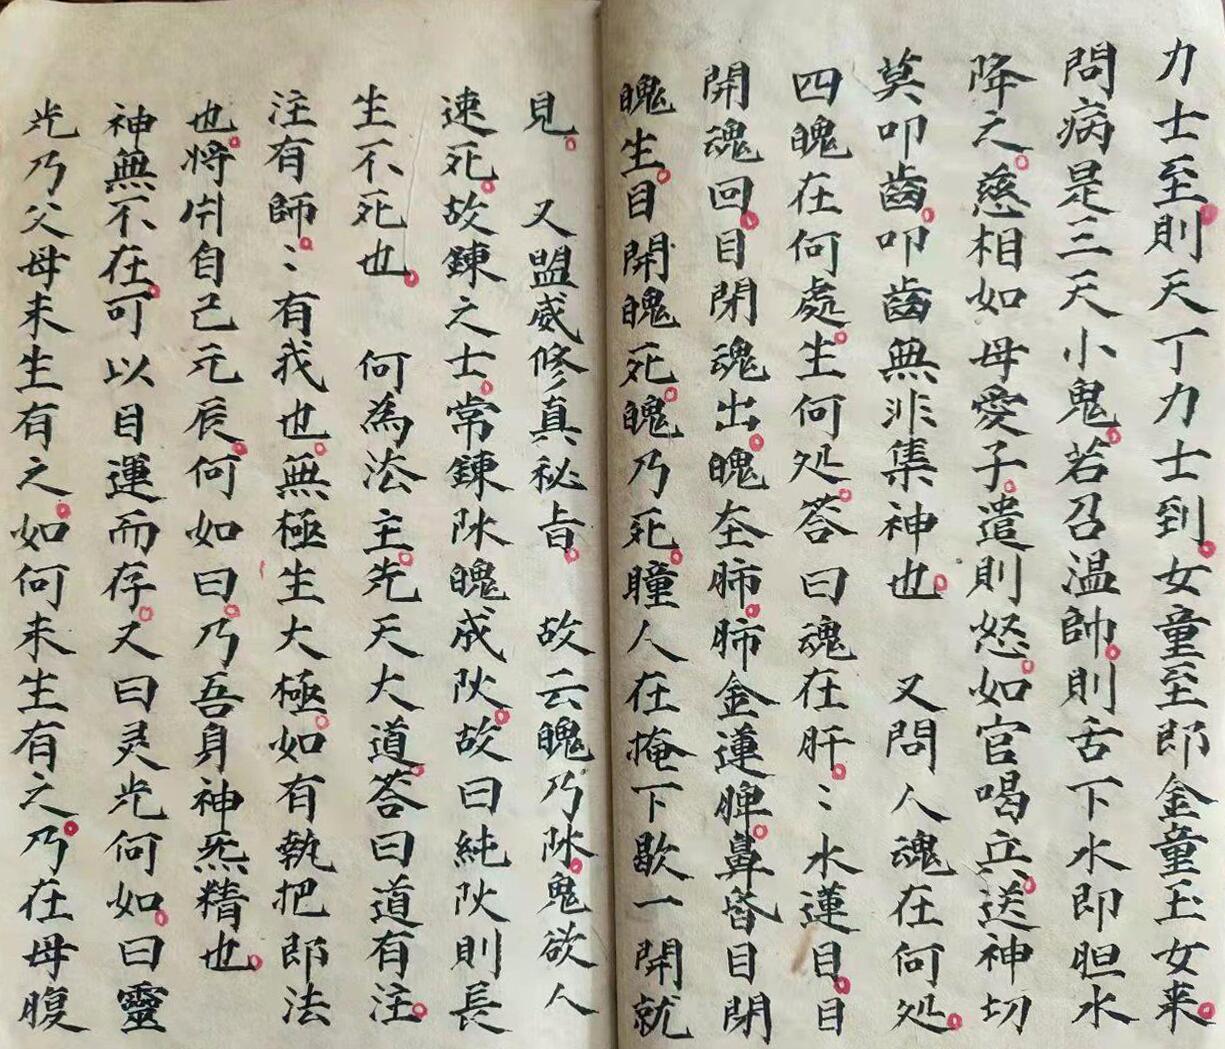 力士至則天丁力士到女童至郎金童玉女来
問病是三天小鬼若召温帥則舌下水即胆水
降之慈相如母愛子遣則怒如官喝兵送神切
莫叩齒叩齒無非集神也 又問人魂在何処
四魄在何處生何処答曰魂在肝〻水蓮目目
開魂回目閉魂出魄在肺肺金蓮脾鼻昏目閉
魄生目開魄死魄乃死瞳人在掩下歇一開就
見 又盟威修真秘旨 故云魄乃阴鬼欲人
速死故鍊之士常鍊阴魄成阳故曰純阳則長
生不死也 何為法主先天大道答曰道有注
注有師〻有我也無極生大極如有執把郎法
也将州自己元辰何如曰乃吾身神炁精也
神無不在可以目運而存又曰灵光何如曰靈
光乃父母未生有之如何未生有之乃在母腹